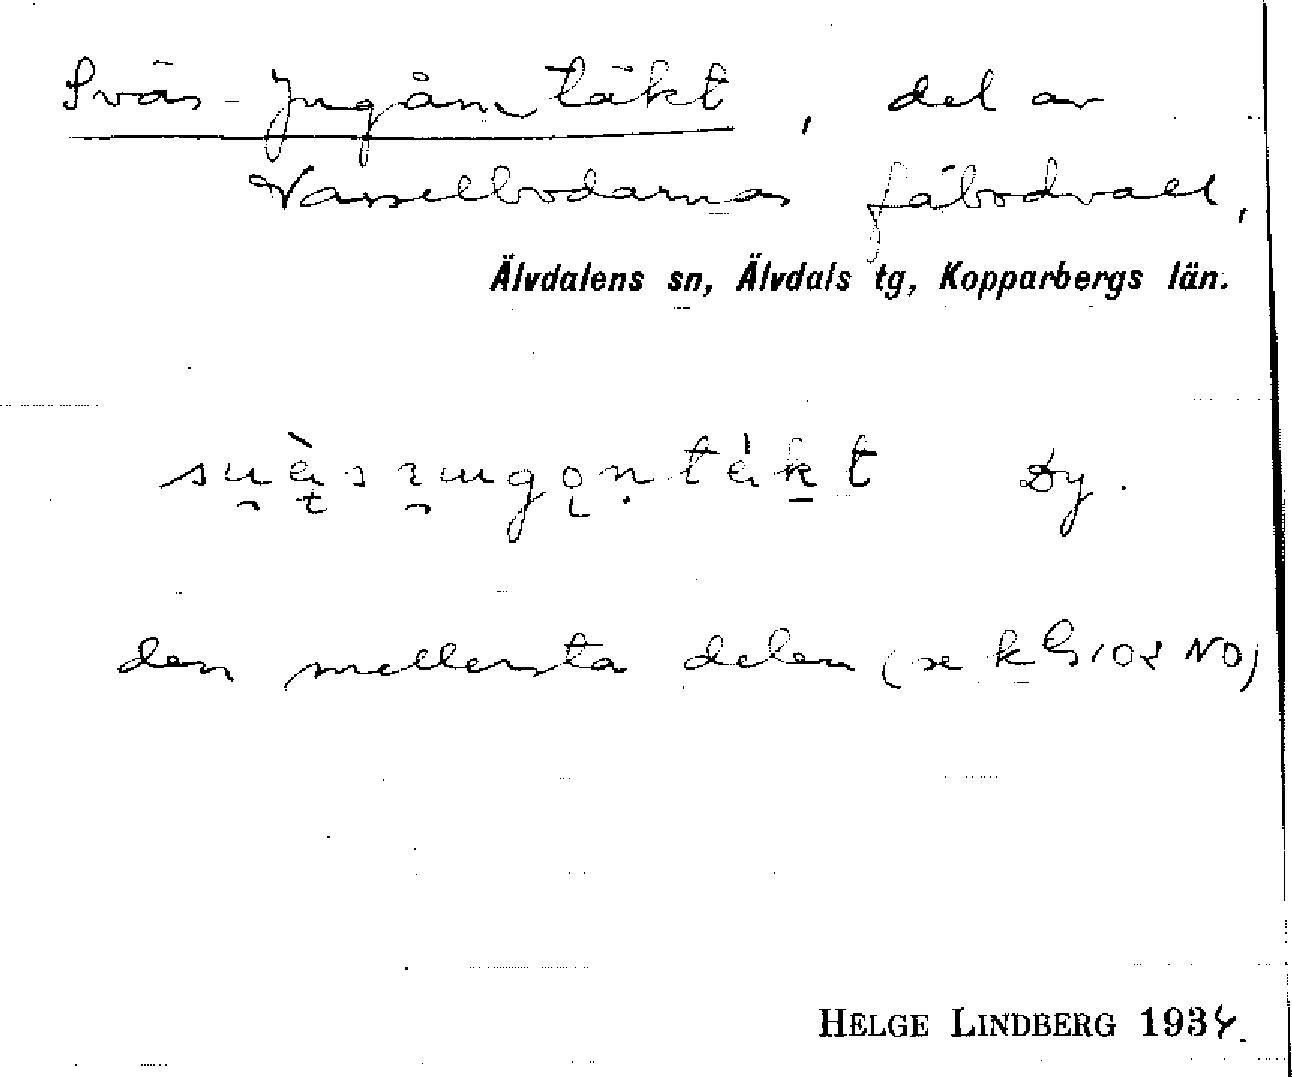 Sväs-Jugåm täkt, del av
Vasselbodarnas fäbodvall,
Älvdalens sn, Älvdals tg, Kopparbergs län.
Dy.
den mellersta delen (se k G 108 NO)
HELGE LINDBERG 1934.